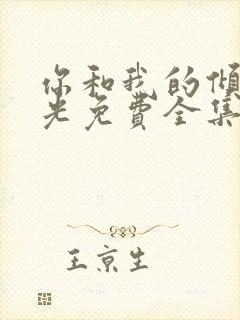 你和我的倾
光免费全集
王京生